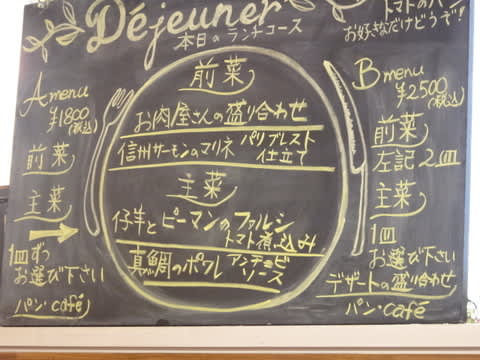 Déjeuner
本日のランチコース
トマトのパン
お好きなだけどうぞ!
A menu
¥1800
(税込)
前菜
主菜
1皿ずつ
お選び下さい
パン・café
前菜
お肉屋さんの盛り合わせ
信州サーモンのマリネ パリブレスト
仕立て
主菜
仔牛とピーマンのファルシ
トマト煮込み
真鯛のポワレ アンチョビ
ソース
B menu
¥2500
(税込)
前菜
左記2皿
主菜
1皿
お選び下さい
デザートの盛り合わせ
パン・café